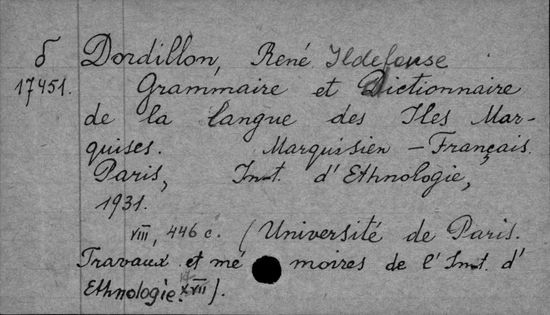 б Dordillon, René Ildefonse
17451. Grammaire et Dictionnaire
de la langue des Iles Mar-
quises. Marquisien - Français.
Paris, Inst. d'Ethnologie,
1931.
VIII, 446 c. (Université de Paris.
Travaux et mémoires de l'Inst. d'
Ethnologie. XVII).